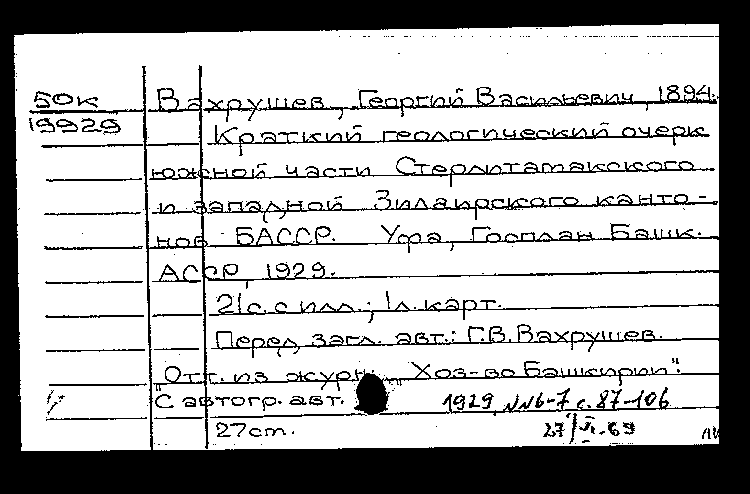 50к Вахрушев, Георгий Васильевич, 1894.
19929 Краткий геологический очерк
южной части Стерлитамакского
и западной Зилаирского канто-
нов БАССР. Уфа, Госплан Башк.
АССР, 1929.
21с. с илл.; 1л. карт.
Перед загл. авт.: Г.В. Вахрушев.
Отт. из журн. „Хоз-во Башкирии".
С автогр. авт. 1929, №6-7 с. 87-106
27cm. 27/VI-69